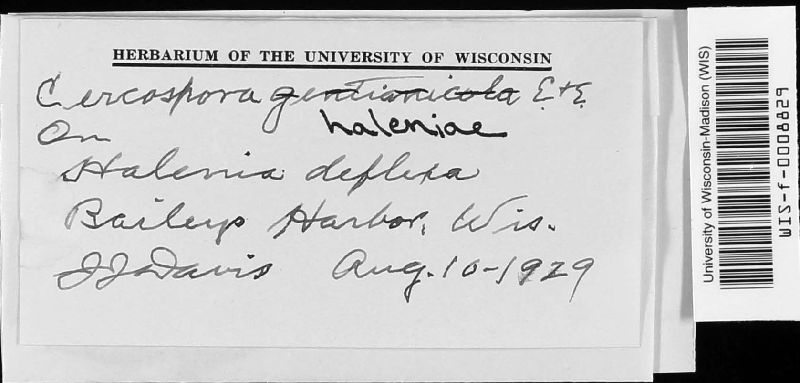 HERBARIUM OF THE UNIVERSITY OF WISCONSIN
Cercospora gentianicola E. & E.
haleniae
On
Halenia deflexa
Baileys Harbor, Wis.
JJ Davis Aug. 10-1929
University of Wisconsin-Madison (WIS)
WIS-f-0008829